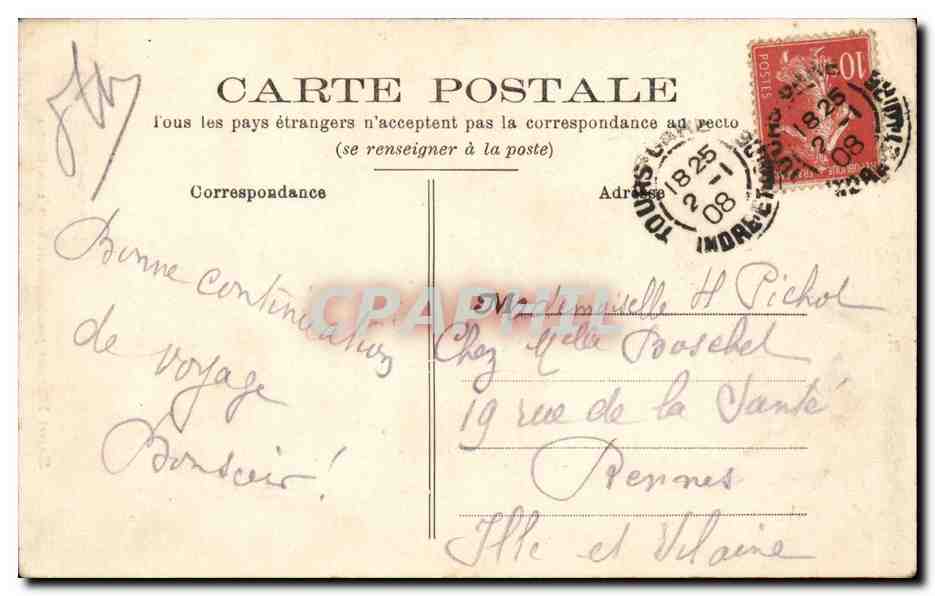 CARTE POSTALE
Tous les pays étrangers n'acceptent pas la correspondance au recto
(se renseigner à la poste)
Correspondance
Adresse
10
POSTES
TOURS-GARE
18 25
2 - 1
08
INDRE ET
TOURS GARE
18 25
2 - 1
08
CPAPHIL
Bonne continuation
de voyage
Bonsoir!
Mademoiselle H Pichot
Chez Mlle Boschet
19 rue de la Santé
Rennes
Ille et Vilaine